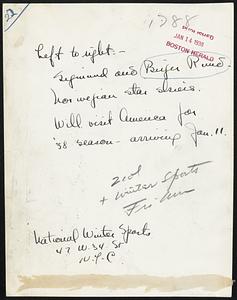 22
1388
JAN 14 1938
BOSTON HERALD
Left to right:-
Sigmund and Birger Ruud.
Norwegian star skiers.
Will visit America for
'38 season - arriving Jan. 11.
2 col
+ Winter Sports
Fri
National Winter Sports
47 W. 34 St
N.Y.C.